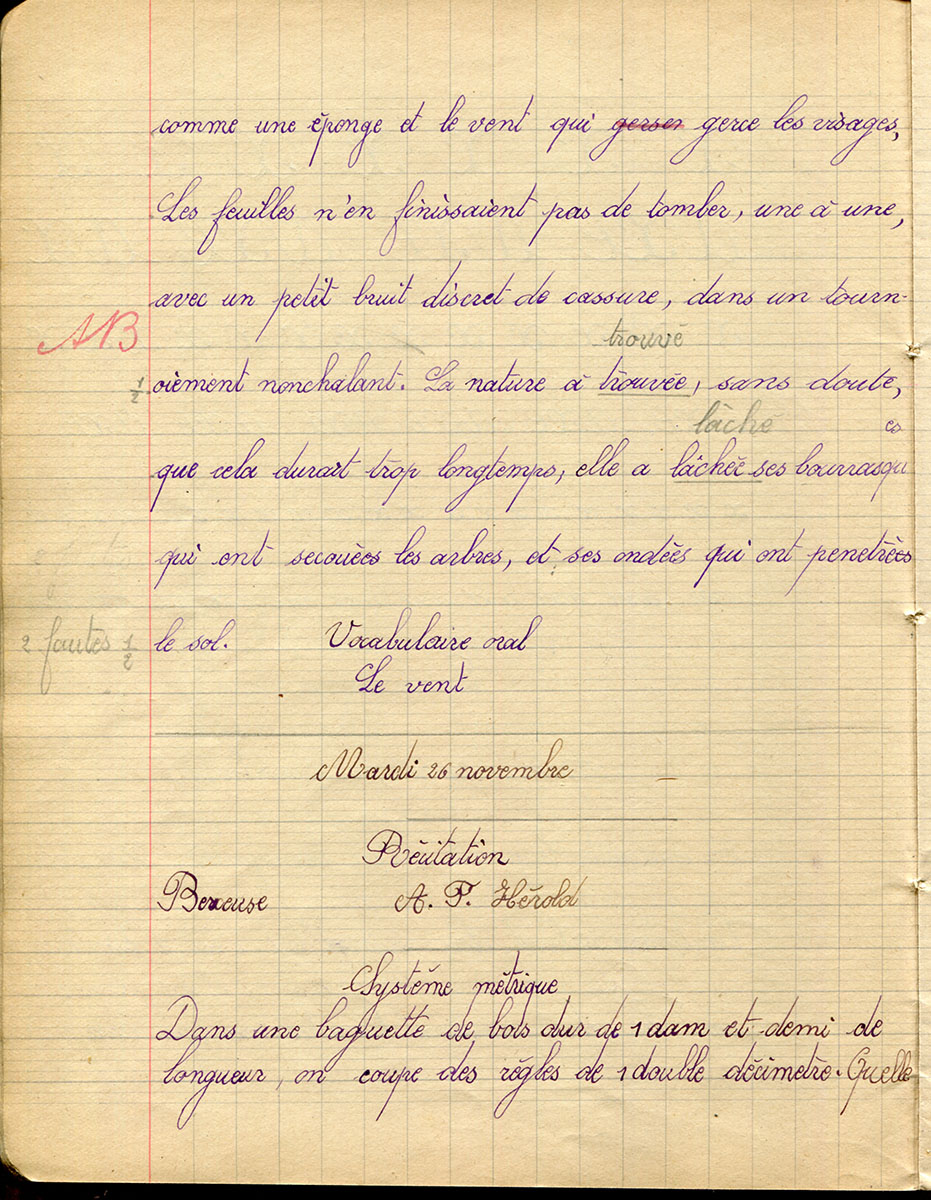 comme une éponge et le vent qui gerser gerce les visages,
Les feuilles n'en finissaient pas de tomber, une à une,
avec un petit bruit discret de cassure, dans un tourn-
AB
trouvé
1/2 oiement nonchalant. La nature à trouvée, sans doute,
lâché es
que cela durart trop longtemps, elle a lâchée ses bourrasqu
qui ont secouées les arbres, et ses ondées qui ont penetrées
2 fautes 1/2 le sol. Vocabulaire oral
Le vent
Mardi 26 novembre
Récitation
Berceuse A. F. Hérold
Système métrique
Dans une baguette de bois dur de 1 dam et demi de
longueur, on coupe des règles de 1 double décimetre. Quelle